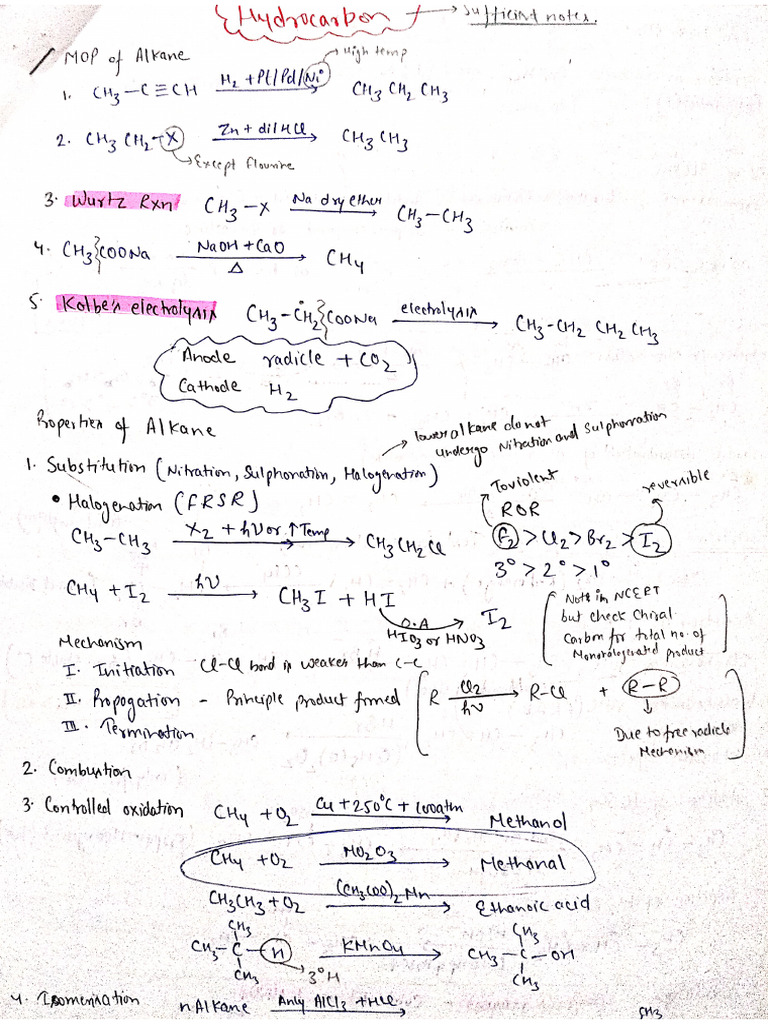 Hydrocarbon → Sufficient notes.
MOP of Alkane
High temp
1. CH3-C≡CH H2 + Pt/Pd/Ni → CH3 CH2 CH3
2. CH3 CH2-X Zn + dil HCl → CH3 CH3
→ Except flourine
3. Wurtz Rxn CH3-X Na dry ether → CH3-CH3
4. CH3 COONa NaOH + CaO → Δ CH4
5. Kolbe's electrolysis CH3-CH2 COONa electrolysis → CH3-CH2 CH2 CH3
Anode radicle + CO2
Cathode H2
Properties of Alkane
→ lower alkane do not
undergo Nitration and Sulphonation
1. Substitution (Nitration, Sulphonation, Halogenation)
• Halogenation (FRSR)
Too violent
reversible
ROR
CH3-CH3 X2 + hν or ↑Temp → CH3CH2Cl
F2 > Cl2 > Br2 > I2
3° > 2° > 1°
CH4 + I2 hν → CH3 I + HI
O.A → I2
HIO3 or HNO3
Not in NCERT
but check Chiral
Carbon for total no. of
Monohalogenated product
Mechanism
I. Initiation Cl-Cl bond is weaker than C-C
II. Propogation - Principle product formed
III. Termination
R Cl2 → hν R-Cl + R-R
↓
Due to free radicle
Mechanism
2. Combustion
3. Controlled oxidation CH4 + O2 Cu + 250°C + 100atm → Methanol
CH4 + O2 MO2O3 → Methanal
CH3CH3 + O2 (CH3COO)2 Mn → Ethanoic acid
CH3 CH3
CH3-C-H KMnO4 → CH3-C-OH
CH3 CH3
→ 3°H
4. Isomerisation n Alkane Anhy AlCl3 + HCl →
CH3